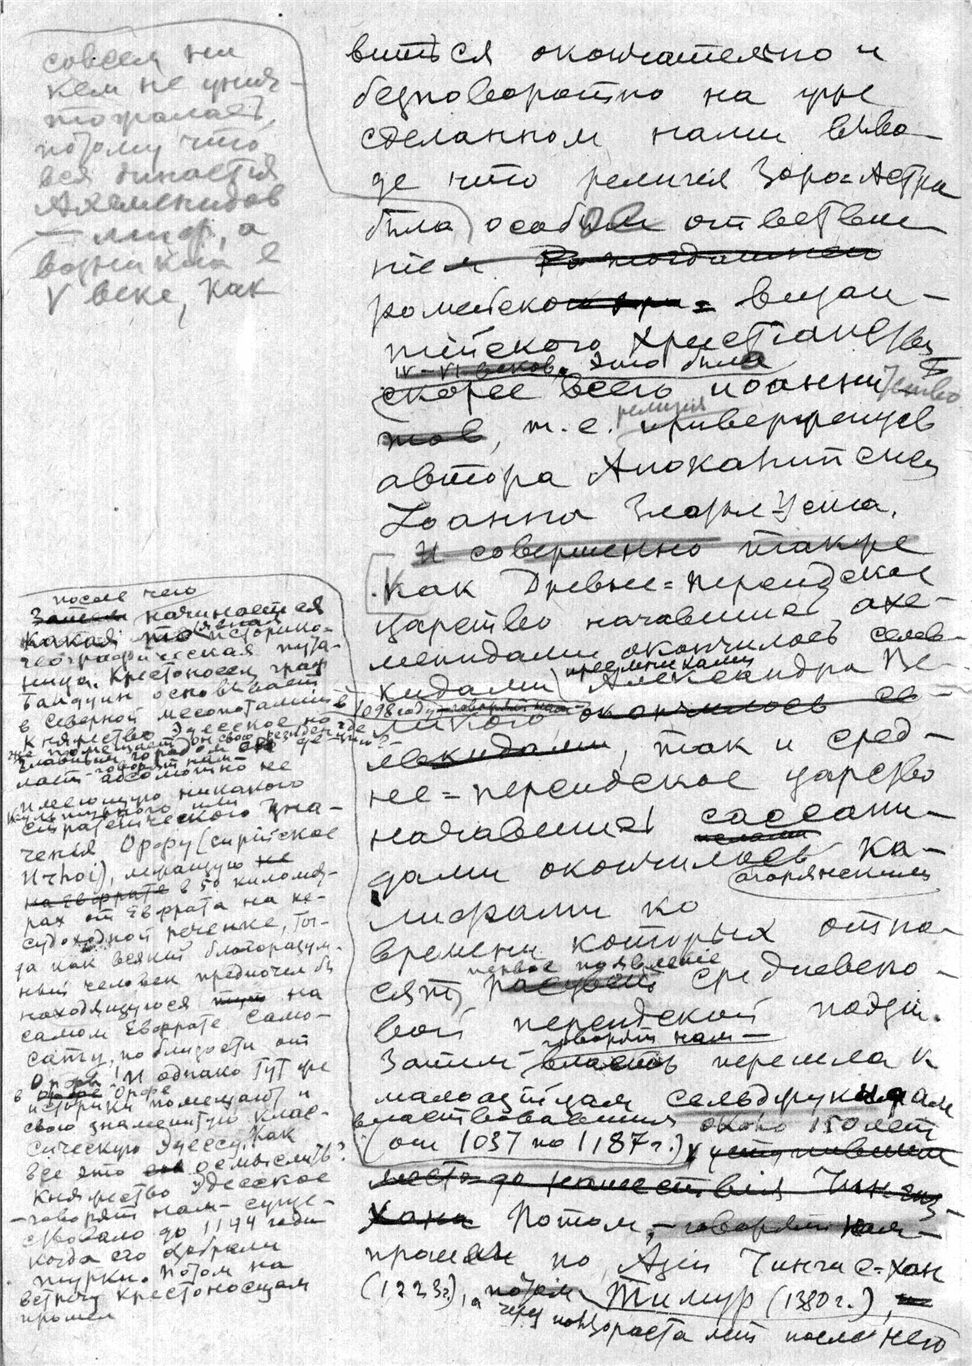 совсем ни
кем не унич-
тожалась,
потому что
вся династия
Ахеменидов
— миф, а
возникла в
V веке, как
виться окончательно и
бесповоротно на уже
сделанном нами выво-
де что религия Зороастра
была особым ответвле
нием
ромейско = визан-
тийского христианства
IV–VI веков. Это была
скорее всего иоаннитство
тов, т. е. религия приверженцев
автора Апокалипсиса
Иоанна Златоуста.
И совершенно также
Как Древне=персидское
царство начавшись ахе-
менидами окончилось селев-
кидами преемниками Александра Ве-
ликого окончилось се-
левкидами, так и сред-
не=персидское царство
начавшись сассани-
дами окончилось Ка-
лифами ко агарянскими
времени которых отно-
сят первое появление средневеко-
вой персидской поэзии.
Затем говорят нам — власть перешла к
малоазийцам сельджукидам
властвовавшим около 150 лет
(от 1037 по 1187 г.)
место до нашествия Чингиз-
Хана Потом, — говорят нам —
прошел по Азии Чингис=хан
(1223г), а потом Тимур (1380 г.),
через полтораста лет после него
после чего
Затем начинается
какая то явная историко-
географическая пута-
ница. Крестоносец граф
Балдуин основывает
в Северной Месопотамии в 1098 году — говорят нам —
Княжество Эдесское но
где же помещает он свою резиденцию?
главным городом его де
лает — говорят нам —
абсолютно не
имеющую никакого
культурного или
стратегического зна-
ченья Орфу (сирийское
Urhoi), лежащую не
на Евфрате в 50 километ-
рах от Евфрата на не-
судоходной реченке, тог-
да как всякий благоразум-
ный человек предпочел бы
находящуюся тут на
самом Евфрате Само-
сату, поблизости от
Орфы! И однако тут же
в Орфе
историки помещают и
свою знаменитую клас-
сическую Эдессу. Как
все это осмыслить?
Княжество Эдесское
— говорят нам — суще-
ствовало до 1144 года
когда его забрали
турки. Потом на
встречу крестоносцам
прошел